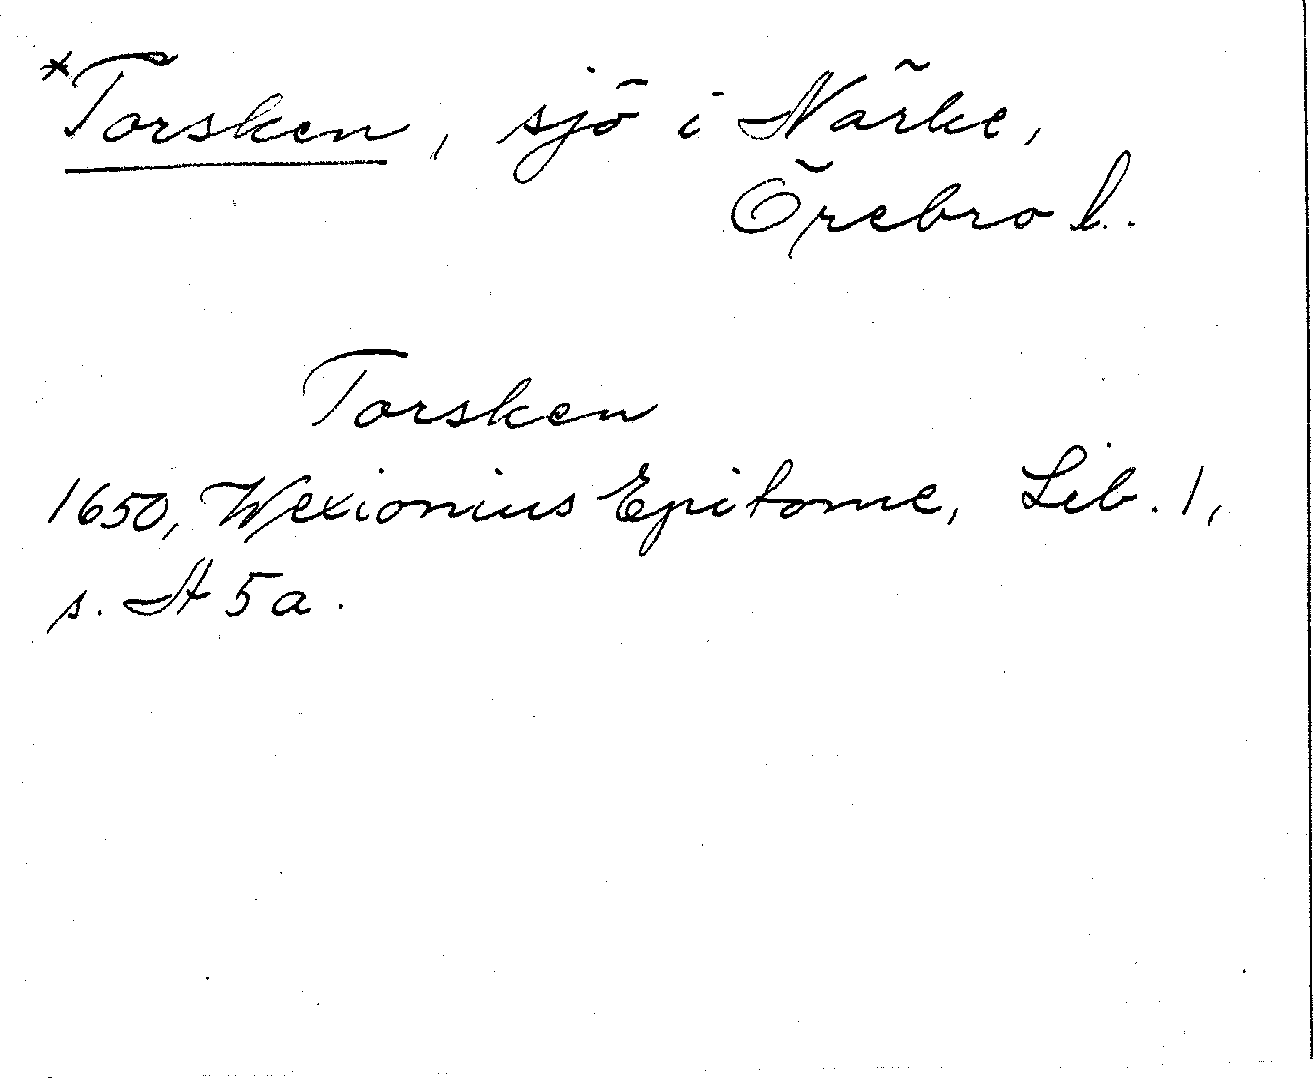 *Torsken, sjö i Närke,
Örebro l.
Torsken
1650, Wexionius Epitome, Lib. 1,
s. A 5 a.